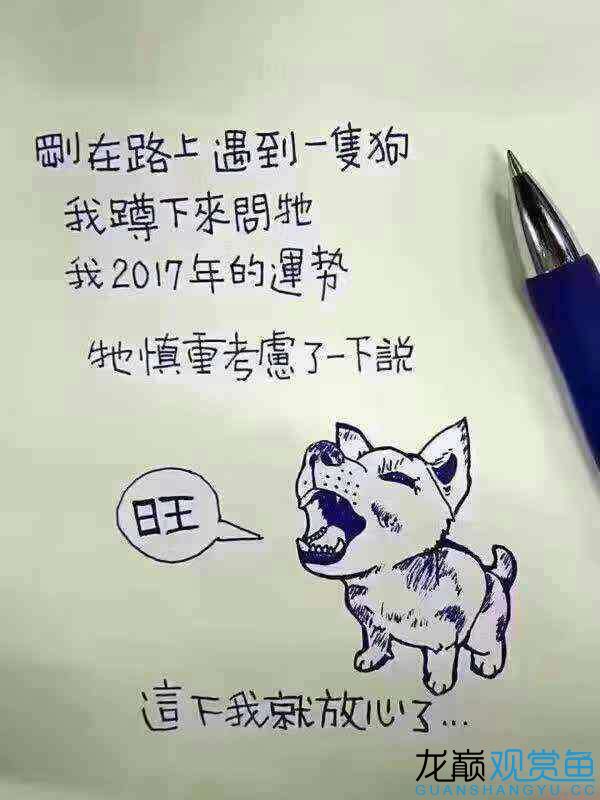 剛在路上遇到一隻狗
我蹲下來問牠
我2017年的運勢
牠慎重考慮了一下説
旺
這下我就放心了...
龙巅观赏鱼
GUANSHANGYU.CC